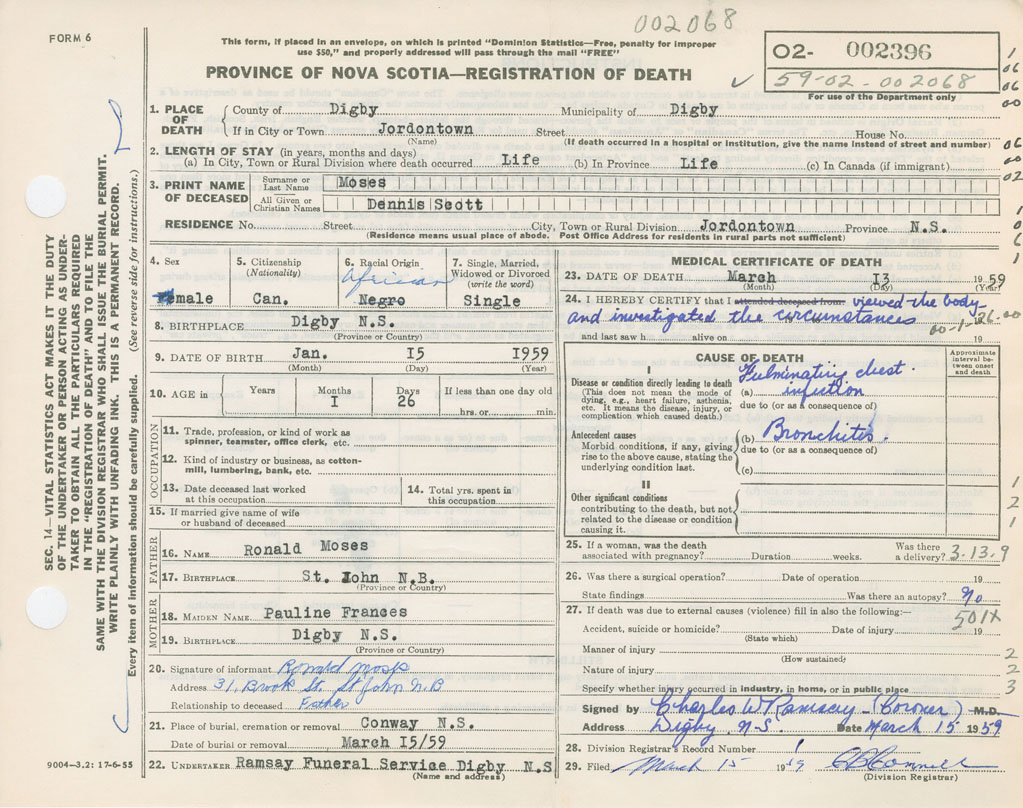 002068
FORM 6
This form, if placed in an envelope, on which is printed "Dominion Statistics—Free, penalty for improper
use $50," and properly addressed will pass through the mail "FREE"
PROVINCE OF NOVA SCOTIA—REGISTRATION OF DEATH
02- 002396
59-02-002068
For use of the Department only
SEC. 14—VITAL STATISTICS ACT MAKES IT THE DUTY
OF THE UNDERTAKER OR PERSON ACTING AS UNDER-
TAKER TO OBTAIN ALL THE PARTICULARS REQUIRED
IN THE "REGISTRATION OF DEATH" AND TO FILE THE
SAME WITH THE DIVISION REGISTRAR WHO SHALL ISSUE THE BURIAL PERMIT.
WRITE PLAINLY WITH UNFADING INK. THIS IS A PERMANENT RECORD.
Every item of information should be carefully supplied. (See reverse side for instructions.)
1. PLACE OF DEATH
County of Digby Municipality of Digby
If in City or Town Jordontown Street House No.
(Name) (If death occurred in a hospital or institution, give the name instead of street and number)
2. LENGTH OF STAY (in years, months and days)
(a) In City, Town or Rural Division where death occurred Life (b) In Province Life (c) In Canada (if immigrant)
3. PRINT NAME OF DECEASED
Surname or Last Name Moses
All Given or Christian Names Dennis Scott
RESIDENCE No. Street City, Town or Rural Division Jordontown Province N.S.
(Residence means usual place of abode. Post Office Address for residents in rural parts not sufficient)
4. Sex
male
5. Citizenship
(Nationality)
Can.
6. Racial Origin
African
Negro
7. Single, Married,
Widowed or Divorced
(write the word)
Single
8. BIRTHPLACE Digby N.S.
(Province or Country)
9. DATE OF BIRTH Jan. 15 1959
(Month) (Day) (Year)
10. AGE in
Years Months Days If less than one day old
1 26 hrs. or min.
OCCUPATION
11. Trade, profession, or kind of work as
spinner, teamster, office clerk, etc.
12. Kind of industry or business, as cotton-
mill, lumbering, bank, etc.
13. Date deceased last worked
at this occupation
14. Total yrs. spent in
this occupation
15. If married give name of wife
or husband of deceased
FATHER
16. NAME Ronald Moses
17. BIRTHPLACE St. John N.B.
(Province or Country)
MOTHER
18. MAIDEN NAME Pauline Frances
19. BIRTHPLACE Digby N.S.
(Province or Country)
20. Signature of informant Ronald Moses
Address 31, Brook St. St John N.B
Relationship to deceased Father
21. Place of burial, cremation or removal Conway N.S.
Date of burial or removal March 15/59
22. UNDERTAKER Ramsay Funeral Service Digby N.S
(Name and address)
9004—3.2: 17-6-55
MEDICAL CERTIFICATE OF DEATH
23. DATE OF DEATH March 13 1959
(Month) (Day) (Year)
24. I HEREBY CERTIFY that I attended deceased from viewed the body
and investigated the circumstances 00-1-26.00
and last saw h alive on 19
CAUSE OF DEATH
Approximate
interval be-
tween onset
and death
I
Disease or condition directly leading to death
(This does not mean the mode of
dying, e.g., heart failure, asthenia,
etc. It means the disease, injury, or
complication which caused death.)
Fulminating chest
(a) infection
due to (or as a consequence of)
Antecedent causes
Morbid conditions, if any, giving
rise to the above cause, stating the
underlying condition last.
(b) Bronchites.
due to (or as a consequence of)
(c)
II
Other significant conditions
contributing to the death, but not
related to the disease or condition
causing it.
25. If a woman, was the death
associated with pregnancy? Duration weeks. Was there
a delivery? 3-13-9
26. Was there a surgical operation? Date of operation 19
State findings Was there an autopsy? No
27. If death was due to external causes (violence) fill in also the following:—
501X
Accident, suicide or homicide? Date of injury 19
(State which)
Manner of injury
(How sustained)
Nature of injury
Specify whether injury occurred in industry, in home, or in public place
Signed by Charles W Ramsay (Coroner) M.D.
Address Digby N.S. Date March 15 1959
28. Division Registrar's Record Number 1
29. Filed March 15 19
(Division Registrar)
1
06
06
00
06
00
02
1
0
6
1
1
2
1
2
2
3